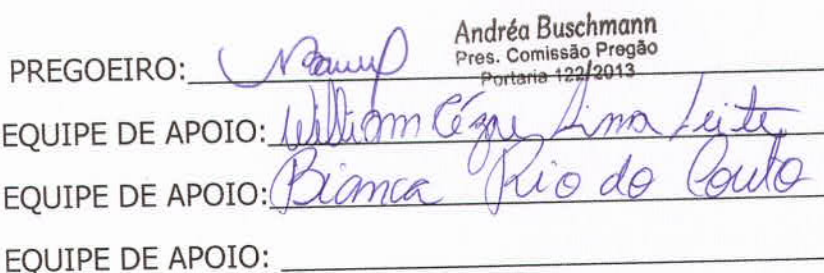 Andréa Buschmann
Pres. Comissão Pregão
Portaria 122/2013
PREGOEIRO:
EQUIPE DE APOIO: William Cézar Lima Leite
EQUIPE DE APOIO: Bianca Rio do Couto
EQUIPE DE APOIO: